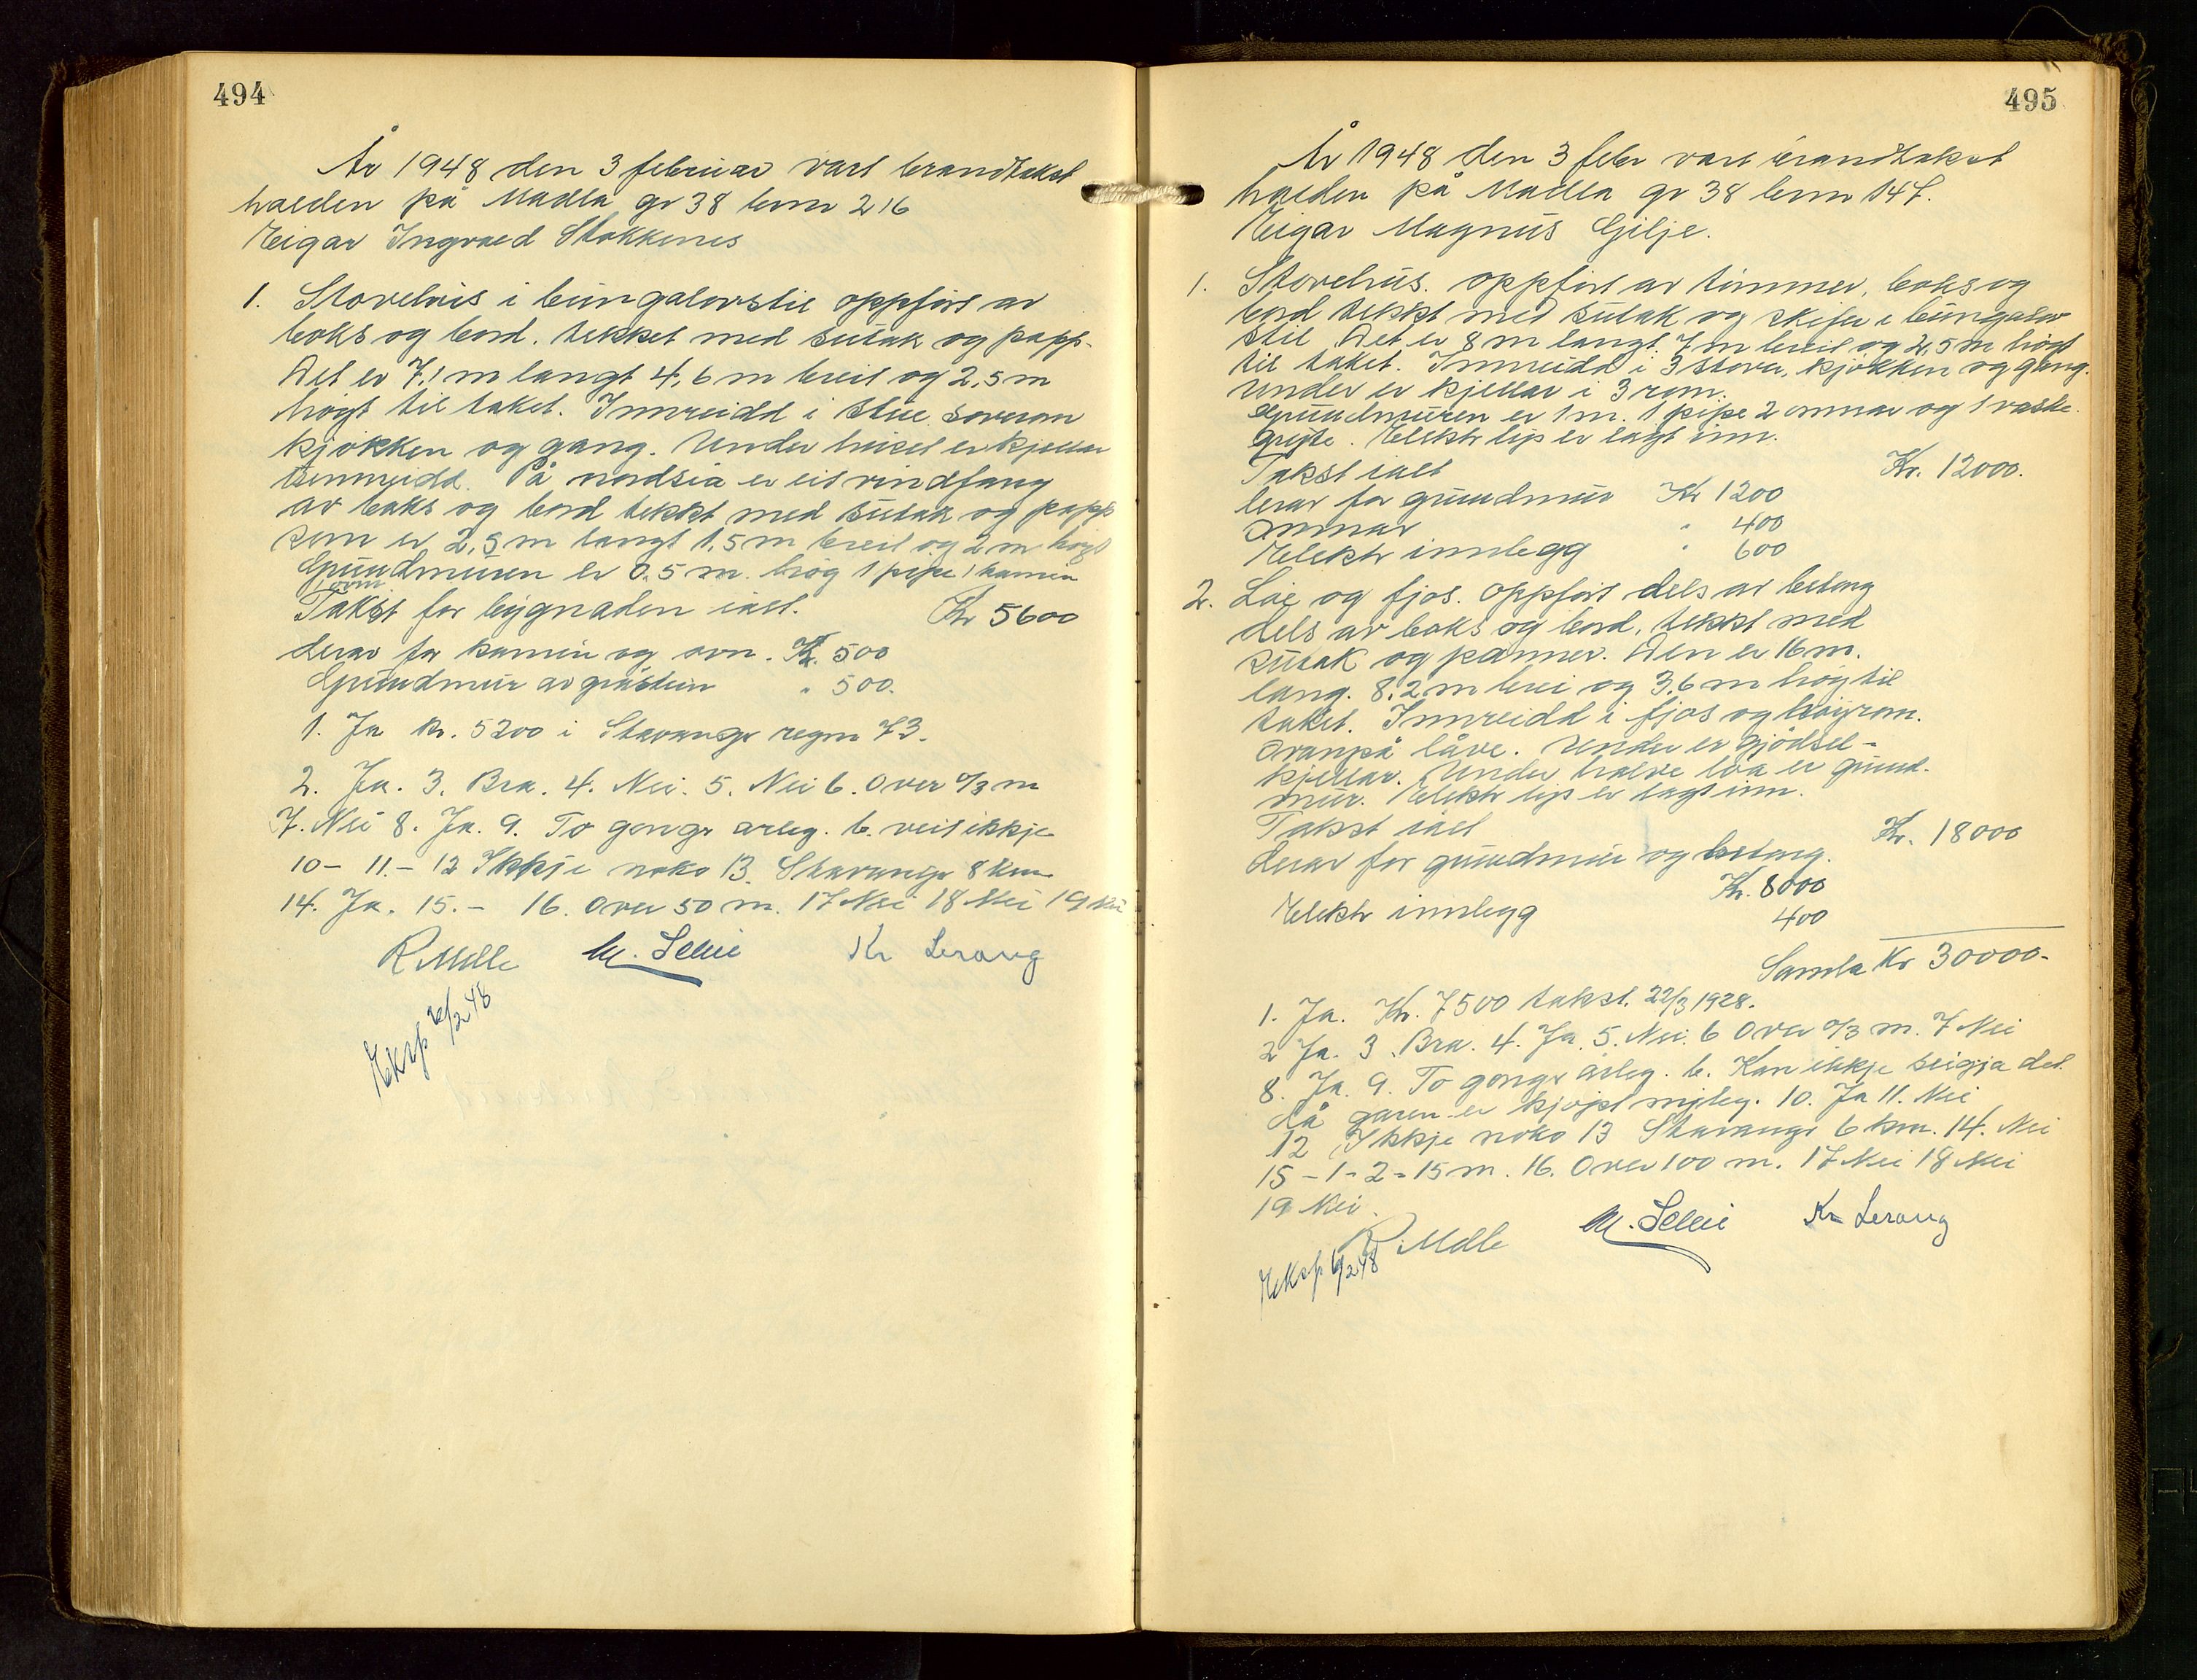 494
År 1948 den 3 februar vart brandtakst
halden på Madla gr 38 brnr 216
Eigar Ingvald Stokkenes
1. Stovehus i bungalovstil oppført av
boks og bord. tekket med sutak og papp.
Det er 7,1 m langt 4,6 m breit og 2,5 m
høgt til taket. Innreidd i stue soverom
kjøkken og gang. Under huset er kjellar
uinnreidd. På nordsia er eit vindfang
av boks og bord tekkt med sutak og papp
som er 2,5 m langt 1,5 m breit og 2 m høgt
Grundmuren er 0,5 m. høg 1 pipe 1 kamin
1 ovn
Takst for bygnaden ialt. Kr 5600
derav for kamin og ovn. Kr. 500
Grundmur av gråstein " 500.
1. Ja kr. 5200 i Stavanger regnr 73.
2. Ja. 3. Bra. 4. Nei. 5. Nei 6. Over 0/3 m
7. Nei 8. Ja. 9. To gonger årleg. b. veit ikkje
10 - 11. - 12 Ikkje noko 13. Stavanger 8 km
14. Ja. 15. - 16. Over 50 m. 17 Nei 18 Nei 19 Nei
R Molle M. Selle Kr Lerang
Eksp 6/2 48
495
År 1948 den 3 febr vart brandtakst
halden på Madla gr 38 brnr 147.
Eigar Magnus Gilje.
1. Stovehus. oppført av timmer, boks og
bord tekkt med sutak og skifer i bungalov
stil Det er 8 m langt 7 m breit og 2,5 m høgt
til taket. Innreidd i 3 stover, kjøkken og gang.
Under er kjellar i 3 rom.
Grundmuren er 1 m. 1 pipe 2 omnar og 1 vaske
gryte. Elektr lys er lagt inn.
Takst ialt Kr. 12000.
derav for grundmur Kr 1200
Omnar " 400
Elektr innlegg " 600
2. Løe og fjos. oppført dels av betong
dels av boks og bord, tekkt med
sutak og panner. Den er 16 m.
lang. 8,2 m brei og 3,6 m høg til
taket. Innreidd i fjos og høirom.
ovanpå låve. Under er gjødsel-
kjellar. Under halve løa er grund-
mur. Elektr lys er lagt inn.
Takst ialt Kr. 18000
derav for grundmur og betong.
Kr. 8000
Elektr innlegg 400
Samla Kr 30000-
1. Ja. Kr. 7500 takst. 22/3 1928.
2 Ja. 3. Bra. 4. Ja. 5. Nei. 6 Over 0/3 m. 7 Nei
8. Ja. 9. To gonger årleg. b. Kan ikkje seigja det
då garen er kjøpt nyleg. 10. Ja 11. Nei
12 Ikkje noko 13 Stavanger 6 km. 14. Nei
15 - 1 - 2 = 15 m. 16. Over 100 m. 17 Nei 18 Nei
19 Nei.
R Molle M. Selle Kr Lerang
Eksp 6/2 48